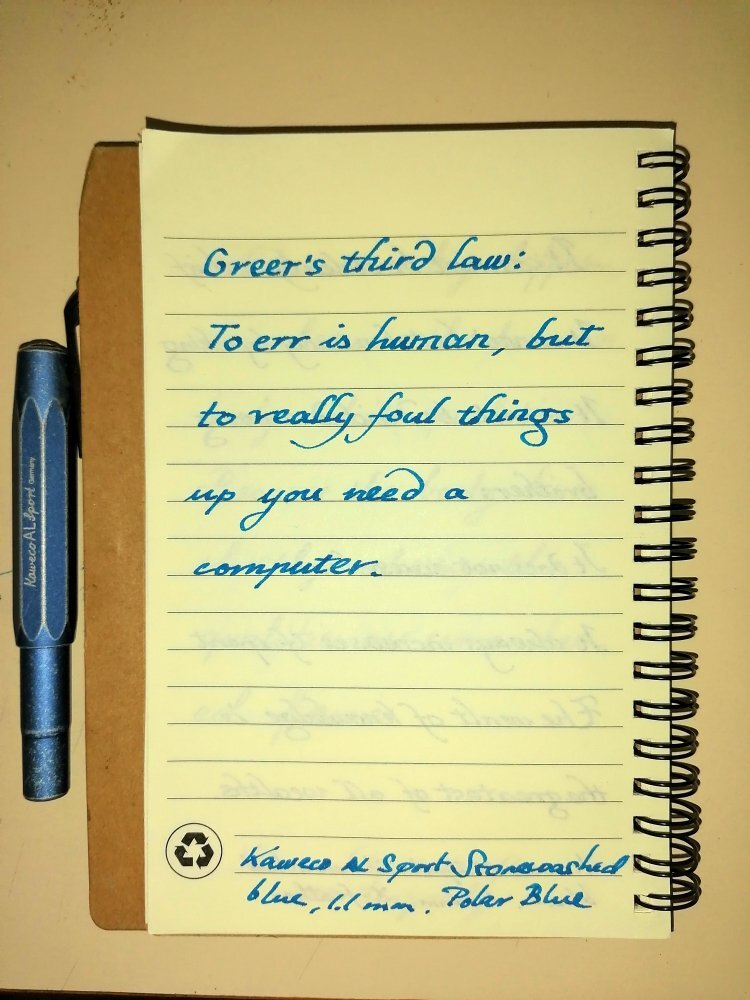 Greer's third law:
To err is human, but
to really foul things
up you need a
computer.
Kaweco AL Sport Stonewashed
blue, 1.1 mm. Polar Blue
Kaweco AL Sport Germany